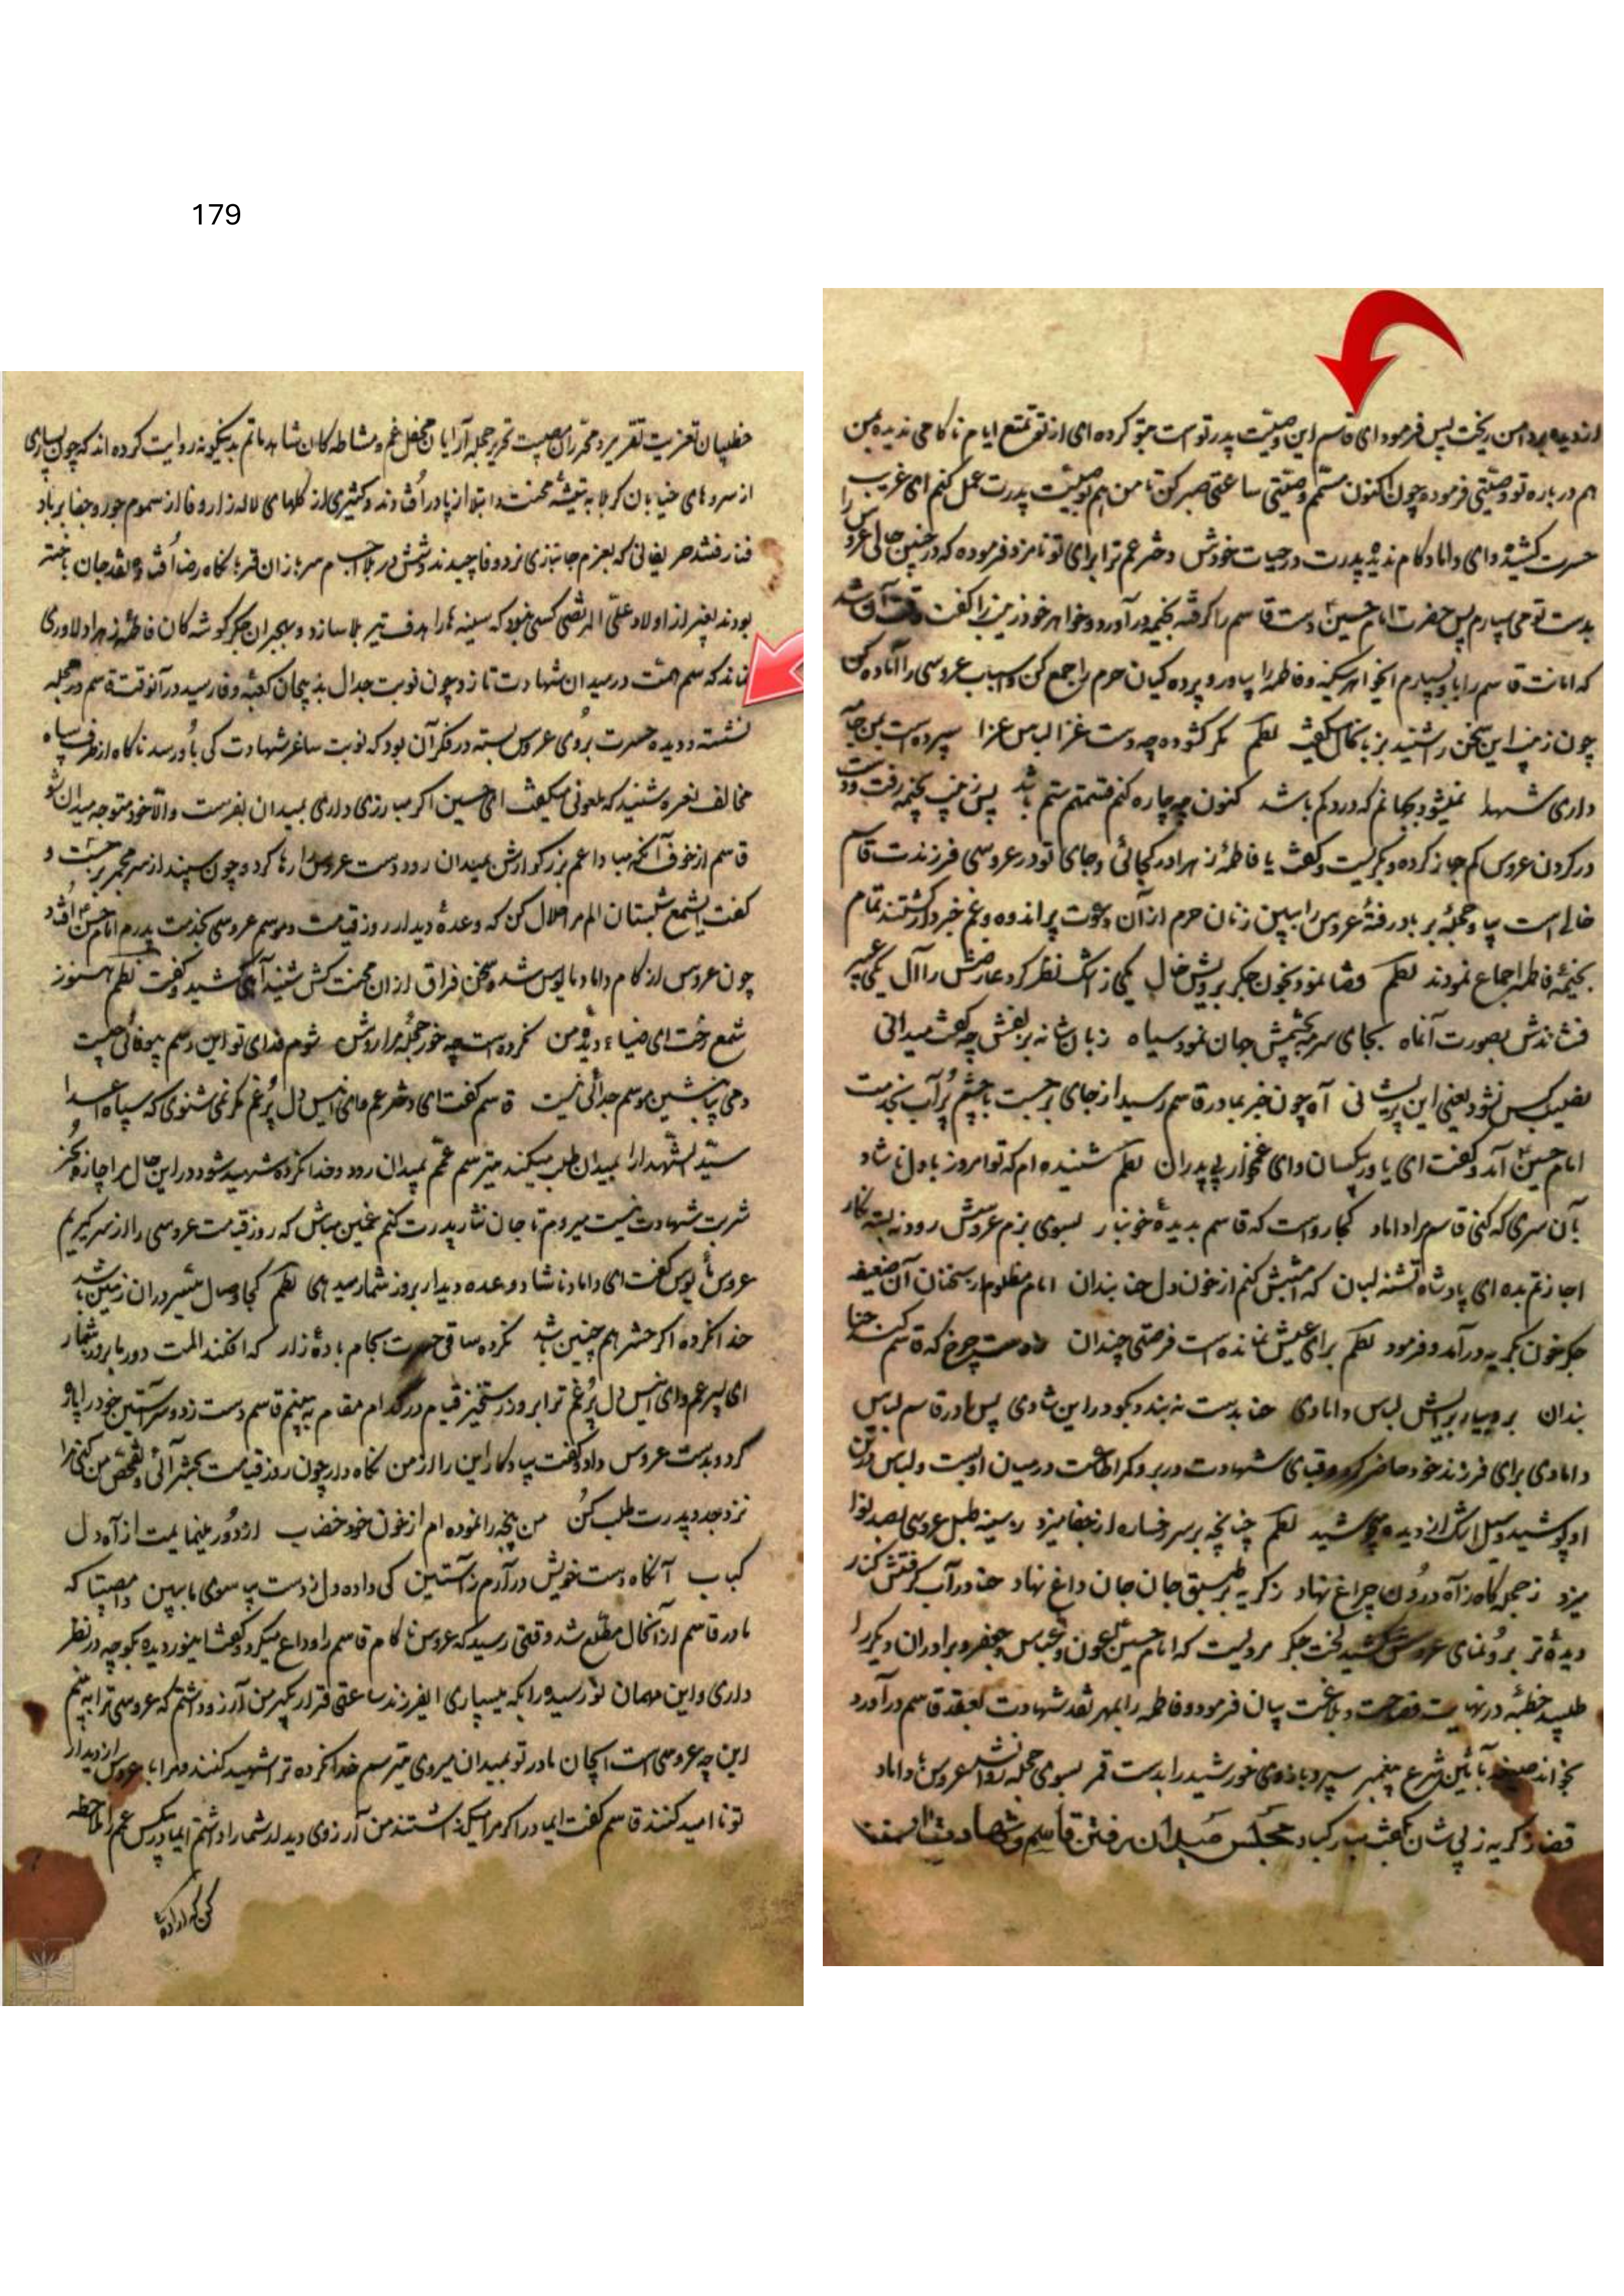 179
از دیده بر دامن ریخت پس فرمود ای قاسم این وصیت پدر تو است بتو کرده ای از تو تمتع ایام ناکامی ندیده من
هم درباره تو وصیتی فرموده چون اکنون وصیتی ساعتی صبر کن تا من هم بوصیت پدرت عمل کنم ای غریب
حسرت کشیده و ای داماد کام ندیده پدرت در حیات خودش دختر عم ترا برای تو نامزد فرموده که در چنین حالی عروس را
بدست تو می سپارم پس حضرت امام حسین دست قاسم را گرفته بخیمه در آورد و خواهر خود زینب را گفت وقت آن شد
که امانت قاسم را باو بسپارم ایخواهر سکینه و فاطمه را بیاور و پرده گیان حرم را جمع کن و اسباب عروسی را آماده کن
چون زینب این سخن را شنید بزبانحال میگفت نظم مگر گشوده چه دست عزا لباس عزا سپرده است بمن
داری شهدا نمیشود بجهانم که درد کم باشد کنون چه چاره کنم قسمتم ستم باشد پس زینب بخیمه رفت و دست
در گردن عروس کم جهاز کرده و بگریست و گفت یا فاطمه زهرا در کجائی و جای تو در عروسی فرزندت قاسم
خالی است بیا و حجله بر باد رفتهٔ عروس را ببین زنان حرم از آن دعوت پر اندوه و غم خبردار گشتند تمام
بخیمهٔ فاطمه اجماع نمودند نظم قضا نمود بخون جگر برویش خال یکی ز اشک نظر کرد عارضش را آل یکی عبیر
فشاندش بصورت آنماه بجای سرمه بچشمش جهان نمود سیاه زبان شانه بزلفش چه گفت میدانی
نصیب کس نشود یعنی این پریشانی آه چون خبر بمادر قاسم رسید از جای برجست با چشم پر آب بخدمت
امام حسین آمد و گفت ای یاور بیکسان و ای غمخوار بی پدران نظم شنیده ام که تو امروز با دل ناشاد
بآن سری که کنی قاسم مرا داماد کجا رواست که قاسم بدیدهٔ خونبار بسوی بزم عروسش رود نه بسته نگار
اجازتم بده ای پادشاه تشنه لبان که امشبش کنم از خون دل حنا بندان امام مظلوم از سخنان آن ضعیفه
جگر خون بگریه در آمد و فرمود نظم برای عیش نمانده است فرصتی چندان چرخ که قاسم کند حنا
بندان برو بیار برایش لباس دامادی حنا بدست نه بندد بگو در این شادی پس مادر قاسم لباس
دامادی برای فرزند خود حاضر کرد و قبای شهادت در بر و کمر اطاعت در میان او بست و لباس در تن
او پوشید و سیل اشک از دیده نظم چنانچه بر سر و خساره از جفا میزد بسینه طبل عروسی بصد نوا
میزد ز حجله گاه ز آه درون چراغ نهاد ز گریه بر طبق جان جان داغ نهاد حنا در آب گرفتش کنار
دیدهٔ تر برونمای عروسش کشید لخت جگر مرویست که امام حسین عون و عباس و جعفر و برادران دیگر را
طلبید خطبه در نهایت فصاحت و بلاغت بیان فرمود و فاطمه را بمهر نقد شهادت بعقد قاسم در آورد
بخواند صیغه بآئین شرع پیغمبر سپرد بازوی خورشید را بدست قمر بسوی حجله روانشد عروس با داماد
قضا ز گریه ز پی شان بگفت مبارکباد مجلس میدان رفتن قاسم و شهادت
خطیبان تعزیت تقریر و محرران مصیبت تحریر حجله آرایان محفل غم و مشاطه گان شاهد ماتم بدینگونه روایت کرده اند که چون بسیاری
از سروهای خیابان کربلا به تیشهٔ محنت و ابتلا از پا در افتادند و کثیری از گلهای لاله زار وفا از سموم جور و جفا بر باد
فنا رفتند حریفانی که بعزم جانبازی نرد وفا چیدند و شش در بلا سربازان قربانگاه رضا و نقد جان باخته
بودند بغیر از اولاد علی المرتضی کسی نبود که سینه ها را هدف تیر بلا سازد و بجز آن جگر گوشه گان فاطمهٔ زهرا دلاوری
نماند که سم همت در میدان شهادت تازد چون نوبت جدال بذبیحان کعبه وفا رسید در آنوقت قاسم در حجله
نشسته و دیده حسرت بروی عروس بسته در فکر آن بود که نوبت ساغر شهادت کی باو رسد ناگاه از طرف سپاه
مخالف نعره شنید که ملعونی میگفت ای حسین اگر مبارزی داری بمیدان بفرست والا خود متوجه میدان شو
قاسم از خوف آنکه مبادا عم بزرگوارش بمیدان رود دست عروس را رها کرد و چون سپند از سر مجمر برجست و
گفت ایشمع شبستان الم مرا حلال کن که وعدهٔ دیدار روز قیامت و موسم عروسی بخدمت پدرم امام حسن افتاد
چون عروس از کام داماد مایوس شد و سخن فراق از آن محنت کش شنید آهی کشید و گفت نظم هنوز
شمع رخت ای ضیاء دیدهٔ من نکرده است چه خور حجله مرا روشن شوم فدای تو این رسم بیوفائی چیست
دمی بیا بنشین موسم جدائی نیست قاسم گفت ای دختر عم و ای انیس دل پر غم مگر نمی شنوی که سپاه اعدا
سید الشهدا را بمیدان طلب میکنند میترسم عمم بمیدان رود و خدا نکرده شهید شود در این حال مرا چاره بجز
شربت شهادت نیست میروم تا جان نثار پدرت کنم غمگین مباش که روز قیامت عروسی را از سر گیریم
عروس مأیوس گفت ای داماد ناشاد وعده دیدار بروز شمار میدهی نظم کجا وصال میسر در آن زمین باشد
خدا نکرده اگر حشر هم چنین باشد نکرده ساقی حسرت بجام بادهٔ زار که افکند المت دور ما بروز شمار
ای پسر عم و ای انیس دل پر غم ترا بروز رستخیز قیام در کدام مقام به بینم قاسم دست زد و سر آستین خود را پاره
کرد و بدست عروس داد و گفت بیادگار این را از من نگاه دار چون روز قیامت بمحشر آئی و تفحص من کنی مرا
نزد جد و پدرت طلب کن من پنجه را نموده ام از خون خود خضاب از دور مینمایمت از آه دل
کباب آنگاه دست خویش در آرم ز آستین کی داده دل ز دست بیا سوی ما ببین وامصیبتا که
مادر قاسم از آنحال مطلع شد وقتی رسید که عروس ناکام قاسم را وداع میکرد و گفت اینور دیده بگو چه در نظر
داری و این مهمان نو رسیده را بکه میسپاری ایفرزند ساعتی قرار بگیر من آرزو داشتم که عروسی ترا به بینم
این چه عروسی است ایجان مادر تو بمیدان میروی میترسم خدا نکرده ترا شهید کنند و مرا با عروس از دیدار
تو نا امید کنند قاسم گفت ایمادر اگر مرا میگذاشتند من آرزوی دیدار شما را داشتم ایمادر بیکسی عم را ملاحظه
کن که اراده